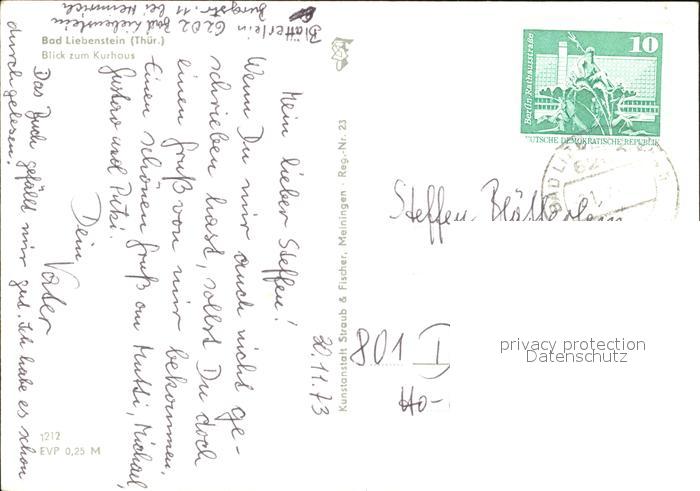 Bad Liebenstein (Thür.)
Blick zum Kurhaus
Blätterlein 6202 Bad Liebenstein
Burgstr. 11 bei Heinrich
30.11.73
Mein lieber Steffen!
Wenn Du mir auch nicht ge-
schrieben hast, sollst Du doch
einen Gruß von mir bekommen.
Einen schönen Gruß an Mutti, Michael,
und
Dein Vater
Das Buch gefällt mir gut. Ich habe es schon
durchgelesen.
1212
EVP 0,25 M
Kunstanstalt Straub & Fischer, Meiningen · Reg.-Nr. 23
10
Berlin, Rathausstraße
DEUTSCHE DEMOKRATISCHE REPUBLIK
BAD LI
62
Steffen Blätterlein
801
Ho-
privacy protection
Datenschutz